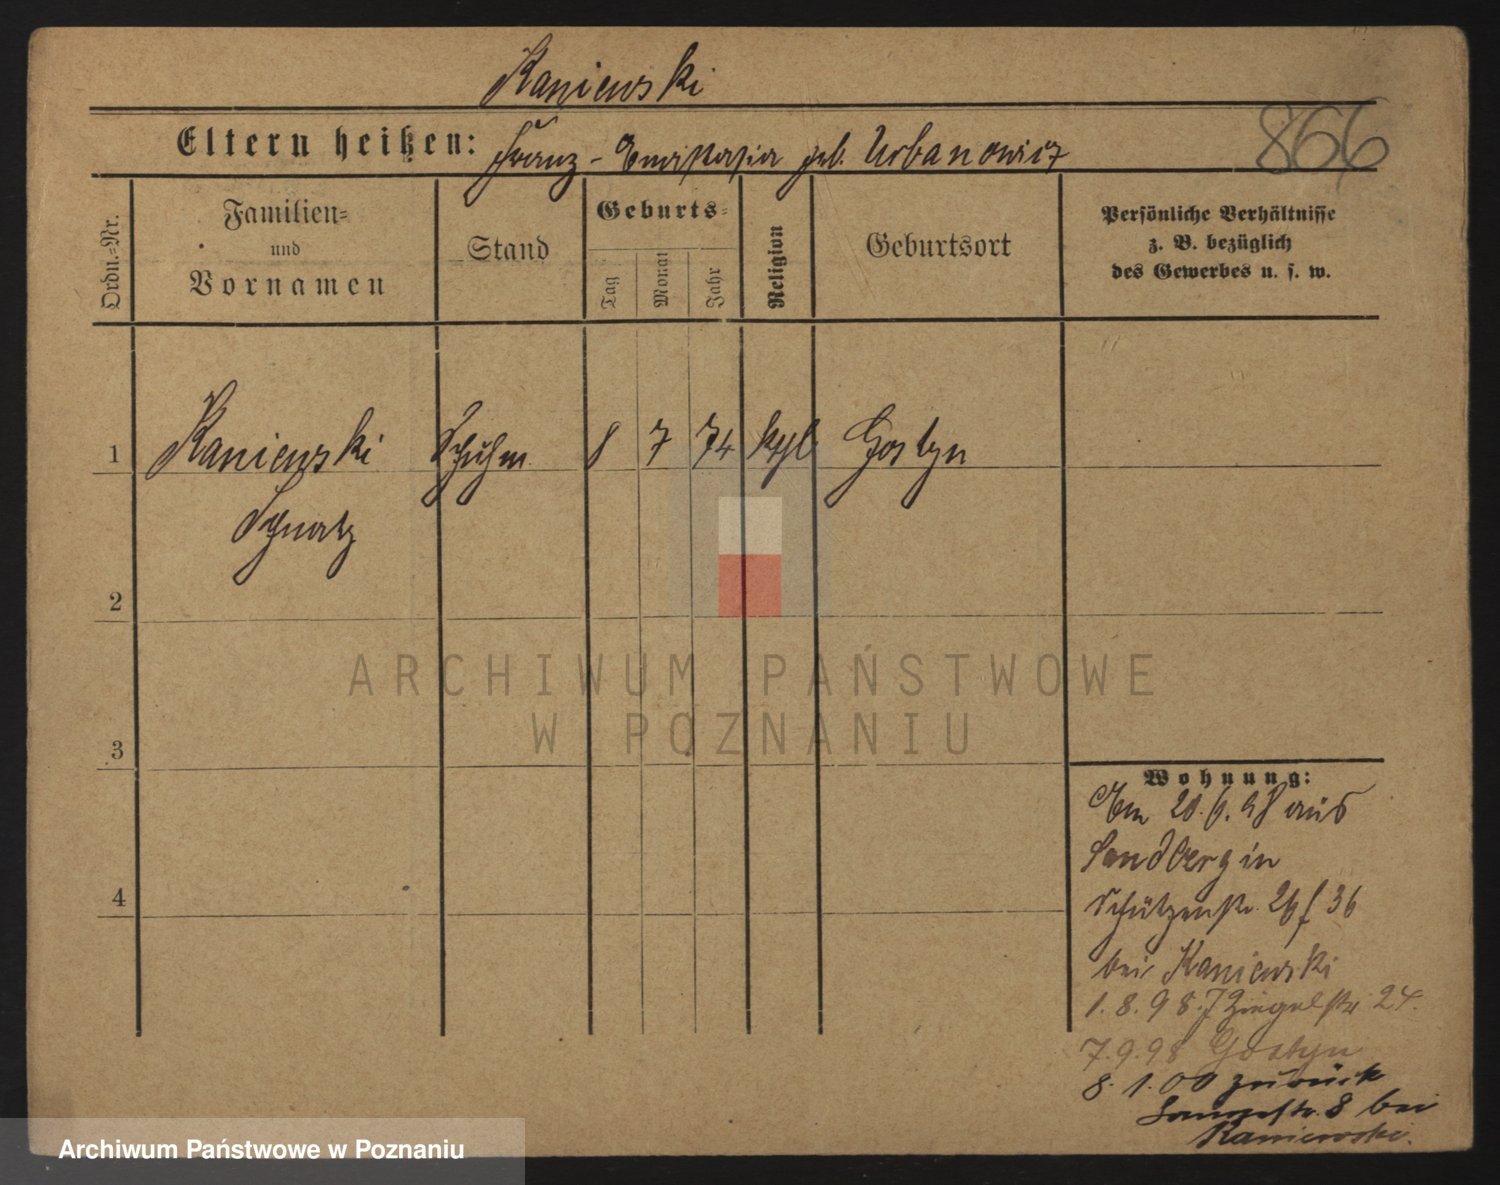 Kaniewski
Eltern heißen: Franz - Anastasia geb. Urbanowicz
866
Ordn.=Nr.
Familien=
und
Vornamen
Stand
Geburts=
Tag
Monat
Jahr
Religion
Geburtsort
Persönliche Verhältnisse
z. B. bezüglich
des Gewerbes u. s. w.
1 Kaniewski Schuhm. 8 7 74 kthl Gostyn
Ignatz
2
3
4
Wohnung:
Am 20.6.98 aus
Sandberg in
Schützenstr. 26 f 36
bei Kaniewski
1.8.98. Ziegelstr. 24.
7.9.98 Gostyn
8.1.00 zurück
8 bei
Kaniewski.
ARCHIWUM PAŃSTWOWE
W POZNANIU
Archiwum Państwowe w Poznaniu